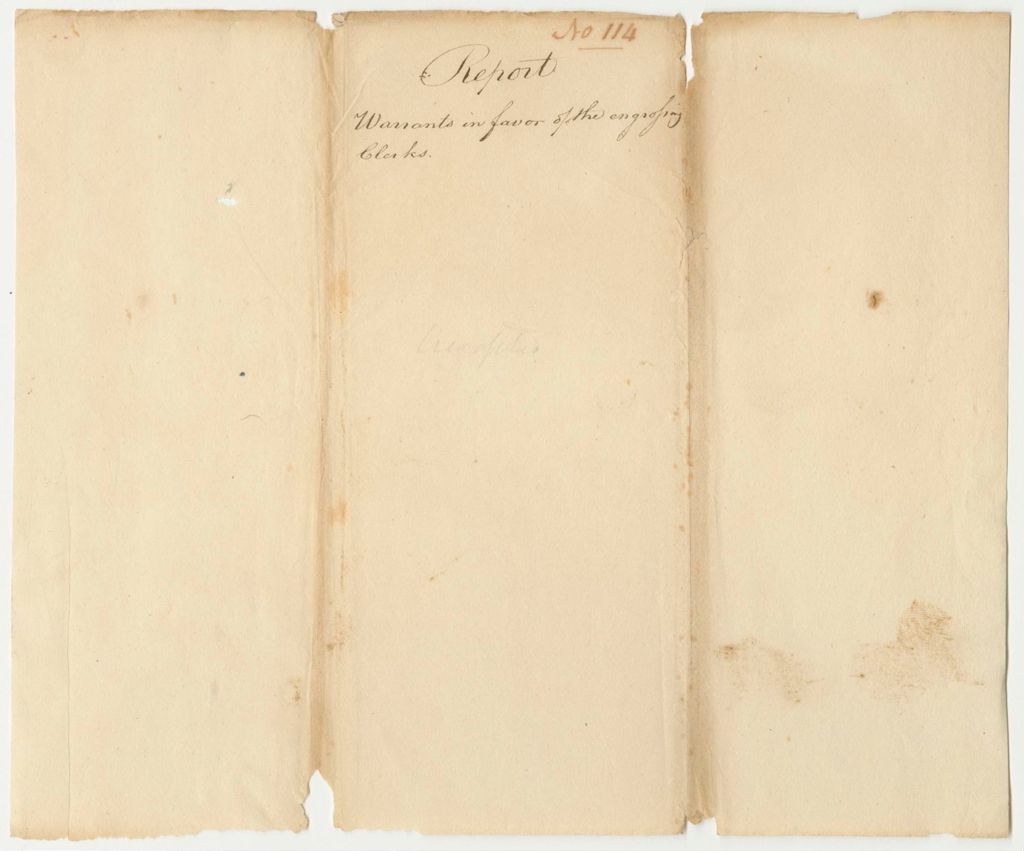 No 114
Report
Warrants in favor of the engrossing
Clerks.